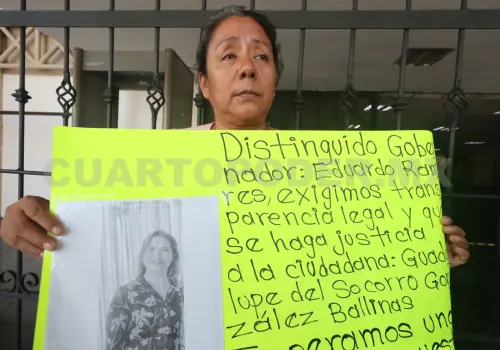 Distinguido Gober-
nador: Eduardo Ramí-
res, exigimos trans-
parencia legal y que
se haga justicia
a la ciudadana: Guada
lupe del Socorro Gon
zález Ballinas
Esperamos una
CUARTOPODER.MX